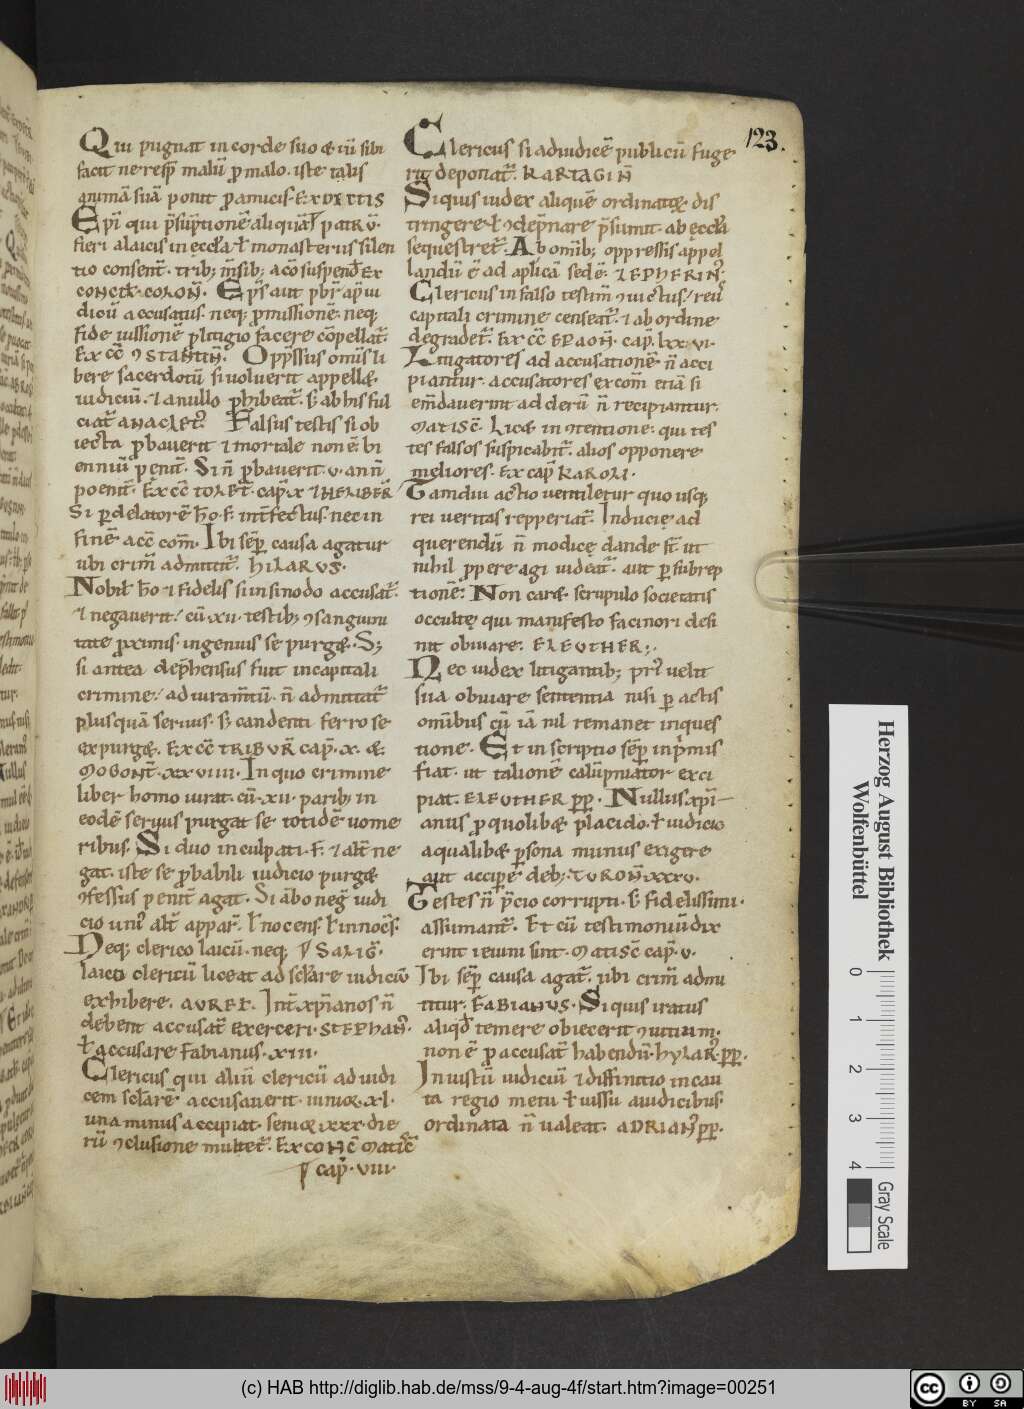 123.
Qui pugnat in corde suo & iu͞ sibi
facit ne resp̄ malu͞ ꝓ malo. iste talis
anima͞ sua͞ ponit ꝓ amicis. EX DICTIS
Ep̄i qui p̄su͞ptione͞ aliqua͞ł patru͞.
fieri a laicis in ęccła ł monasteriis silen
tio consent͞. trib; m͞sib; a co͞ suspend͞ Ex
CONCIƚ. COLON͞. Ep̄s aut pb͞r ap̄ iu
diciu͞ accusatus. neq; ꝓmissione͞ neq;
fide iussione͞ ꝑ litigio facere co͞pellat͛.
Ex cc͞ ꝯSTANTIN͞. Opp̄ssus om͞is li
bere sacerdotu͞ si voluerit appell&.
iudiciu͞. ⁊ a nullo ꝓhibeat͛. s; ab his ful
ciat͛ ANACLET᷒. Falsus testis si ob
iecta ꝓbauerit ⁊ mortale non e͞. bi
enniu͞ pęnit͞. Si n͞ ꝓbauerit. v. ann͞
poenit͞. Ex cc͞ TOLET͞. cap̄. x ⁊ HERIBER͞
Si ꝑ delatore͞ ho͞. f. int͛fectus. nec in
fine͞ acc͞ com͞. Ibi sep̄ causa agatur
ubi crim͞ admittit͛. HILARUS.
Nobił ho͞ ⁊ fidelis si in sinodo accusat͛.
⁊ negauerit / cu͞. xii. testib; ꝯsanguini
tate ꝓximis. ingenius se purg&. S;
si antea dep̄hensus fuit in capitali
crimine / ad iuram͞tu͞. n͞ admittat͛
plus qua͞ seruus. s; candenti ferro se
expurg&. Ex cc͞ TRIBUR͞ cap̄. x. &
MOGONT͞. xxviiii. In quo crimine
liber homo iurat. cu͞. xii. parib; in
eode͞ seruus purgat se totide͞ uome
ribus. Si duo inculpati. f. & alt͛ ne
gat. iste se ꝓbabili iudicio purg&
ꝯfessus penit͞ agat. Si a͞bo neg͞ iudi
cio uni᷒ alt͛ appar͛. ł nocens. ł innoc͞s.
Neq; clerico laicu͞. neq; SALIG͞.
laico clericu͞ liceat ad sclare iudiciu͞
exhibere. AUREƚ. Int͛ xp̄ianos n͞
debent accusat͛ exerceri. STEPHAN᷒.
ł accusare Fabianus. xiii.
Clericus qui aliu͞ clericu͞ ad iudi
cem sclare͞ accusauerit. iunior xl.
una minus accipiat. senior xxx. die
ru͞ ꝯclusione multet͛. Ex CONC͞ Matisc͞
cap̄. viii.
Clericus si ad iudice͞ publicu͞ fuge
rit deponat͛. KARTAGIN͞
Siquis iudex alique͞ ordinator͞. dis
tringere ł ꝯdep̄nare p̄sumit. ab ęccła
sequestret͛. Ab om͞ib; oppressis appel
landu͞ e͞ ad ap̄lica͞ sede͞. ZEPHERIN᷒.
Clericus in falso testim͞ ꝯuictus / reu᷒
capitali crimine censeat͛. ⁊ ab ordine
degradet͛. Ex cc͞ EPAON͞. cap̄. lxxvi.
Litigatores ad accusatione͞ n͞ acci
piantur. accusatores excom͞. etia͞ si
em͞dauerint ad cleru͞ n͞ recipiantur.
MATISC͞. Lic& in ꝯtentione. qui tes
tes falsos suspicabit͛. alios opponere
meliores. Ex cap̄ KAROLI.
Tamdiu actio uentiletur quo usq;
rei ueritas repperiat͛. Inducię ad
querendu͞ n͞ modicę dande st͞ ut
nihil ꝓpere agi uideat͛. aut ꝑ subrep
tione͞. Non car& scrupulo societatis
occultę qui manifesto facinori desi
nit obuiare. ELEUTHER;.
Nec iudex litigantib; pri᷒ uelit
sua obuiare sententia nisi ꝑactis
om͞ibus cu͞ ia͞ nil remanet in ques
tione. Et in scriptio sep̄ inprimis
fiat. ut talione͞ calu͞pniator exci
piat. ELEUTHER ꝑꝑ. Nullus xp̄i
anus ꝓ quolib& placido. ł iudicio
a qualib& ꝑsona munus exigere
aut accipere deb;. TURON͞. xxxv.
Testes n͞ p̄cio corrupti. s; fidelissimi.
assumant͛. Et cu͞ testimoniu͞ dix
erint ieiuni sint. MATISC͞ cap̄. v.
Ibi sep̄ causa agat͛. ubi crim͞ admi
titur. FABIANUS. Siquis iratus
aliqd͞ temere obiecerit ꝯuitium.
non e͞ ꝓ accusat͛ habendu͞. HYLAR᷒. ꝑꝑ.
Iniustu͞ iudiciu͞ ⁊ diffinitio iniu
ta regio metu ł iussu a iudicibus.
ordinata n͞ ualeat. ADRIAN᷒ ꝑꝑ.
Herzog August Bibliothek
Wolfenbüttel
0 1 2 3 4
Gray Scale
(c) HAB http://diglib.hab.de/mss/9-4-aug-4f/start.htm?image=00251
cc BY SA